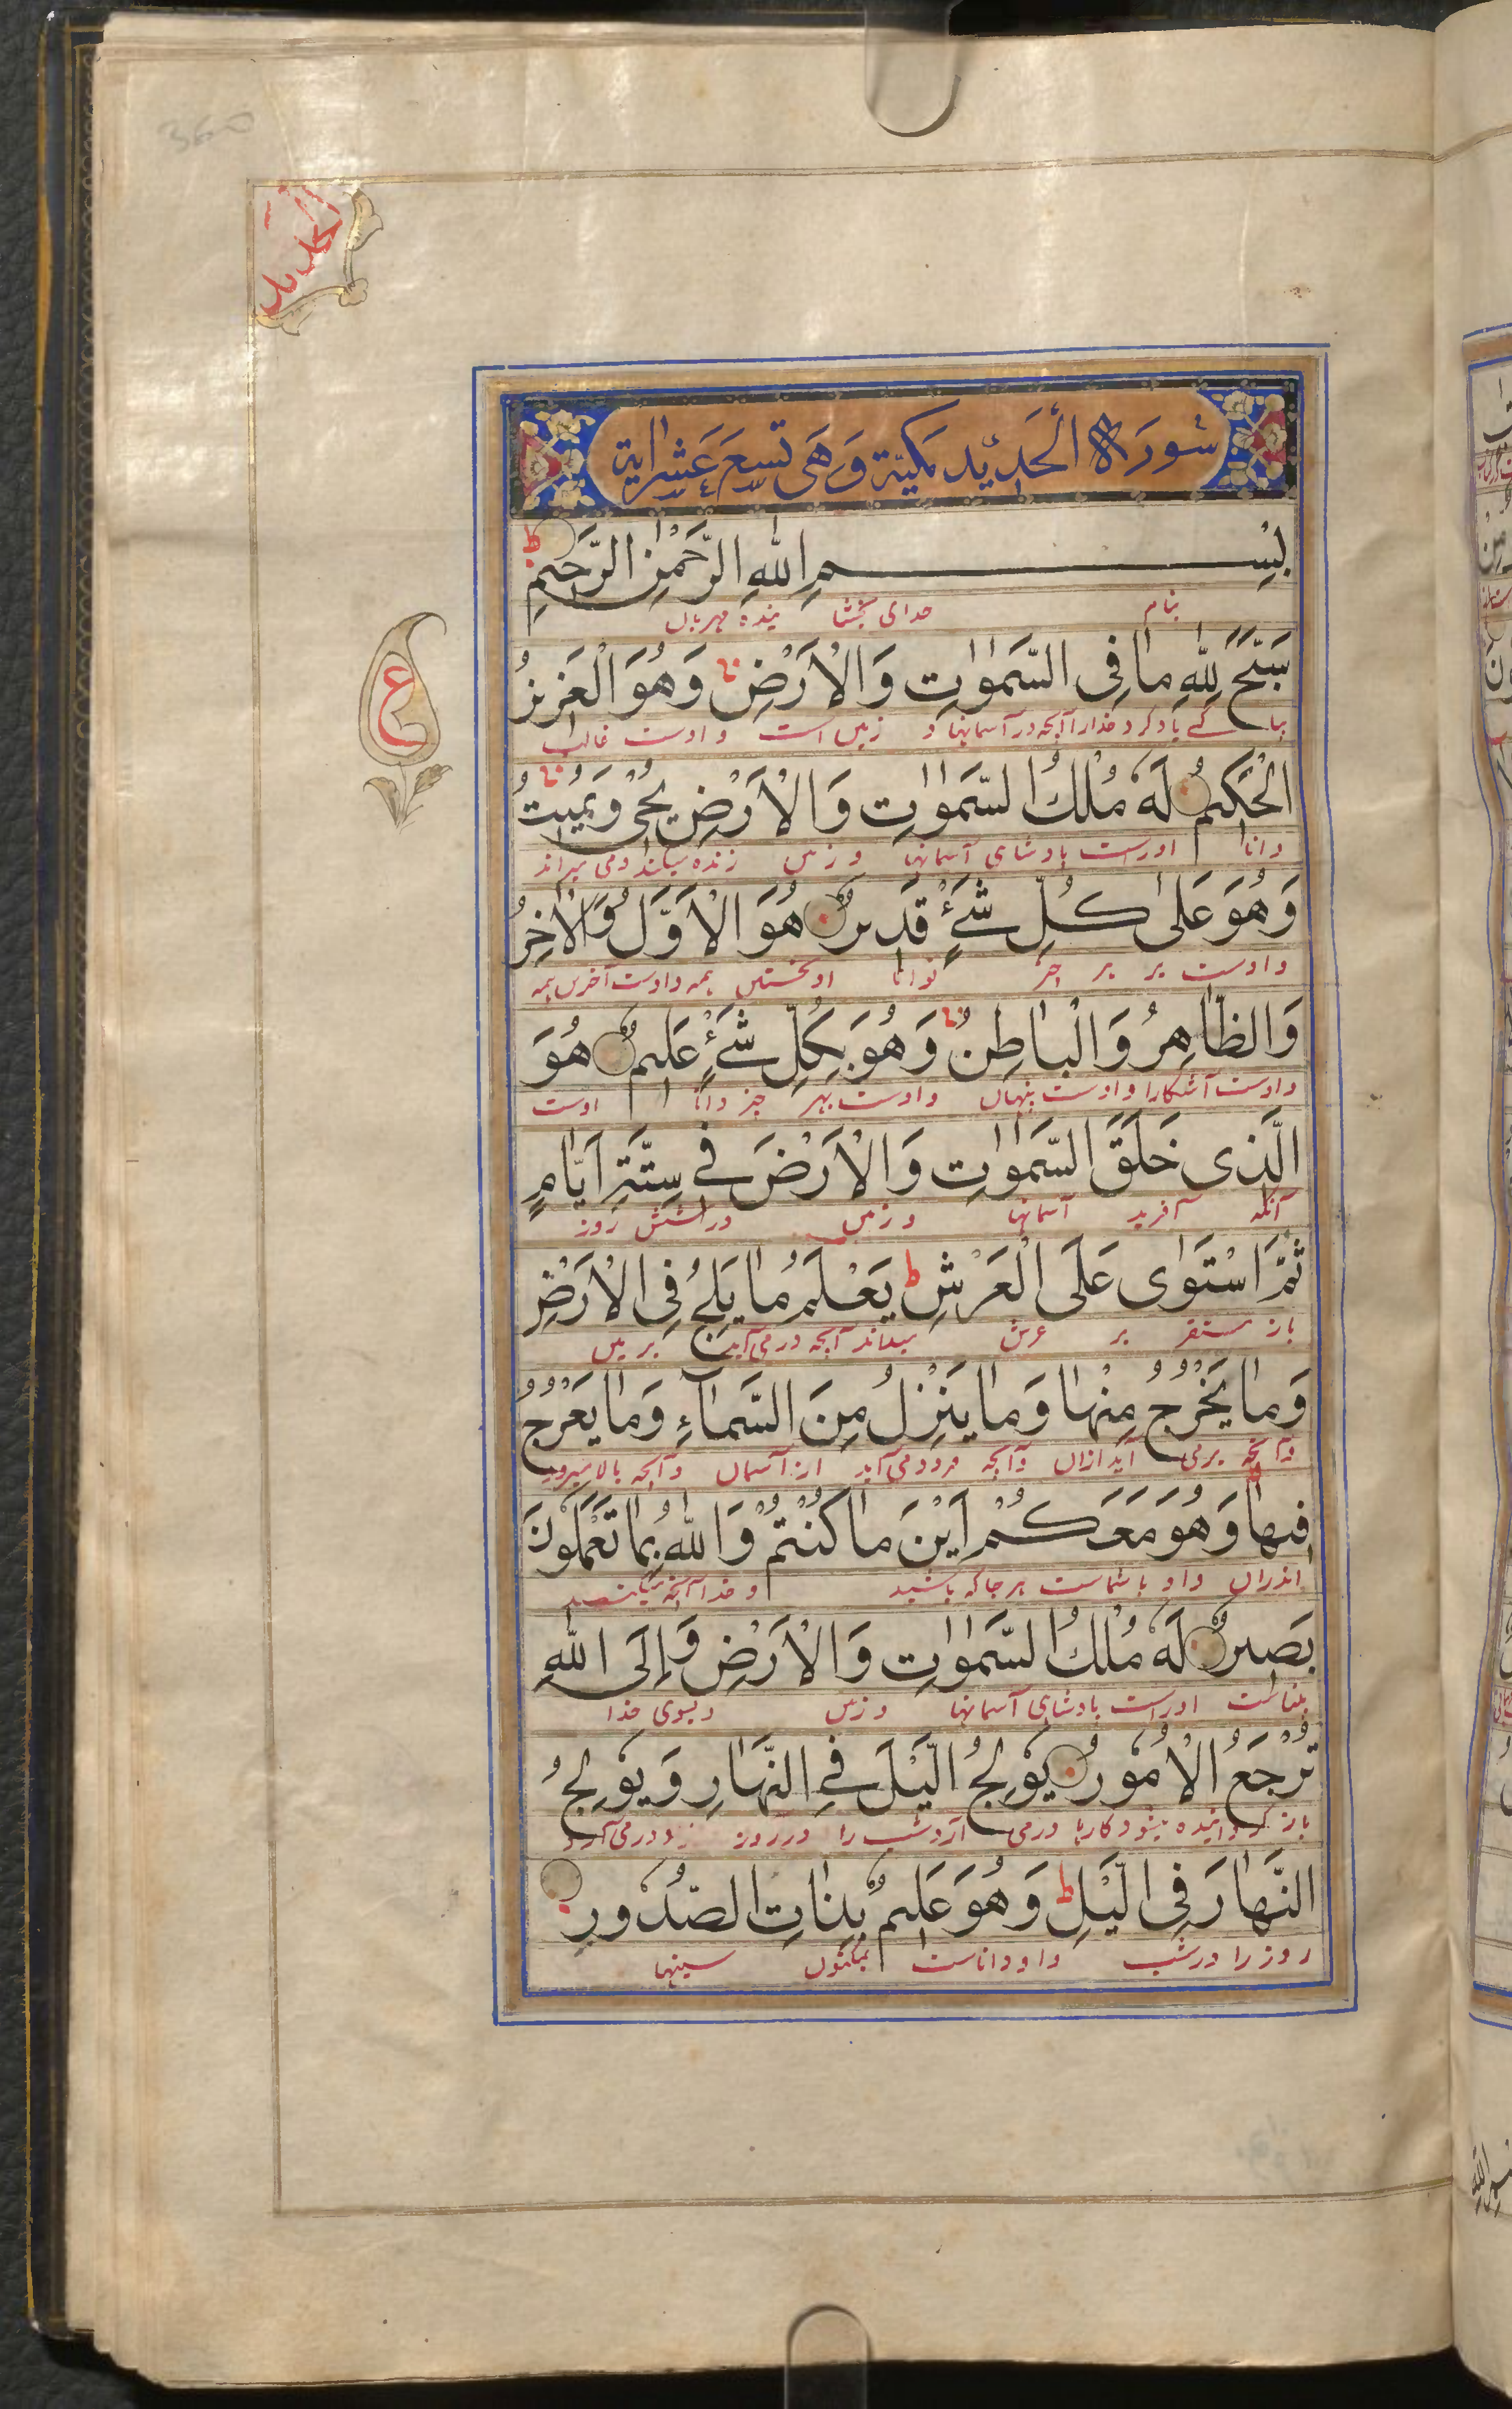 360
الحدید
سُورَة الْحَدِيد مَكِيّة وَهَى تسعَ عَشْر اٰية
بِسْمِ اللّٰهِ الرَّحْمٰنِ الرَّحِيمِ ط
بنام خدای بخشا ینده مهربان
سَبَّحَ لِلّٰهِ مَا فِى السَّمٰوٰتِ وَالْاَرْضِ وَهُوَ الْعَزِيزُ
بپا کے یاد کرد خدا را آنچه در آسمانها و زمین است و اوست غالب
ع
الْحَكِيمُ لَهٗ مُلْكُ السَّمٰوٰتِ وَالْاَرْضِ يُحْىٖ وَيُمِيتُ
دانا اوراست بادشاهی آسمانها و زمین زنده میکند و می میراند
وَهُوَ عَلٰى كُلِّ شَىْءٍ قَدِيرٌ هُوَ الْاَوَّلُ وَالْاٰخِرُ
و اوست بر هر چیز توانا او نخستین همه و اوست آخرین همه
وَالظَّاهِرُ وَالْبَاطِنُ وَهُوَ بِكُلِّ شَىْءٍ عَلِيمٌ هُوَ
و اوست آشکارا و اوست پنهان و اوست بهر چیز دانا اوست
الَّذِى خَلَقَ السَّمٰوٰتِ وَالْاَرْضَ فِے سِتَّةِ اَيَّامٍ
آنکه آفرید آسمانها و زمین در شش روز
ثُمَّ اسْتَوٰى عَلَى الْعَرْشِ ط يَعْلَمُ مَا يَلِجُ فِى الْاَرْضِ
باز مستقر بر عرش میداند آنچه در می آید بزمین
وَمَا يَخْرُجُ مِنْهَا وَمَا يَنْزِلُ مِنَ السَّمَآءِ وَمَا يَعْرُجُ
و آنچه برمی آید ازان و آنچه فرود می آید از آسمان و آنچه بالا میرود
فِيهَا وَهُوَ مَعَكُمْ اَيْنَ مَا كُنْتُمْ وَاللّٰهُ بِمَا تَعْمَلُونَ
اندران و او با شماست هر جا که باشید و خدا آنچه میکنید
بَصِيرٌ لَهٗ مُلْكُ السَّمٰوٰتِ وَالْاَرْضِ وَاِلَى اللّٰهِ
بیناست اوراست بادشاهی آسمانها و زمین و بسوی خدا
تُرْجَعُ الْاُمُورُ يُولِجُ الَّيْلَ فِے النَّهَارِ وَيُولِجُ
باز گردانیده میشود کارها درمی آرد شب را در روز و درمی آرد
النَّهَارَ فِى الَّيْلِ ط وَهُوَ عَلِيمٌ بِذَاتِ الصُّدُورِ
روز را در شب و او داناست بمکنون سینها